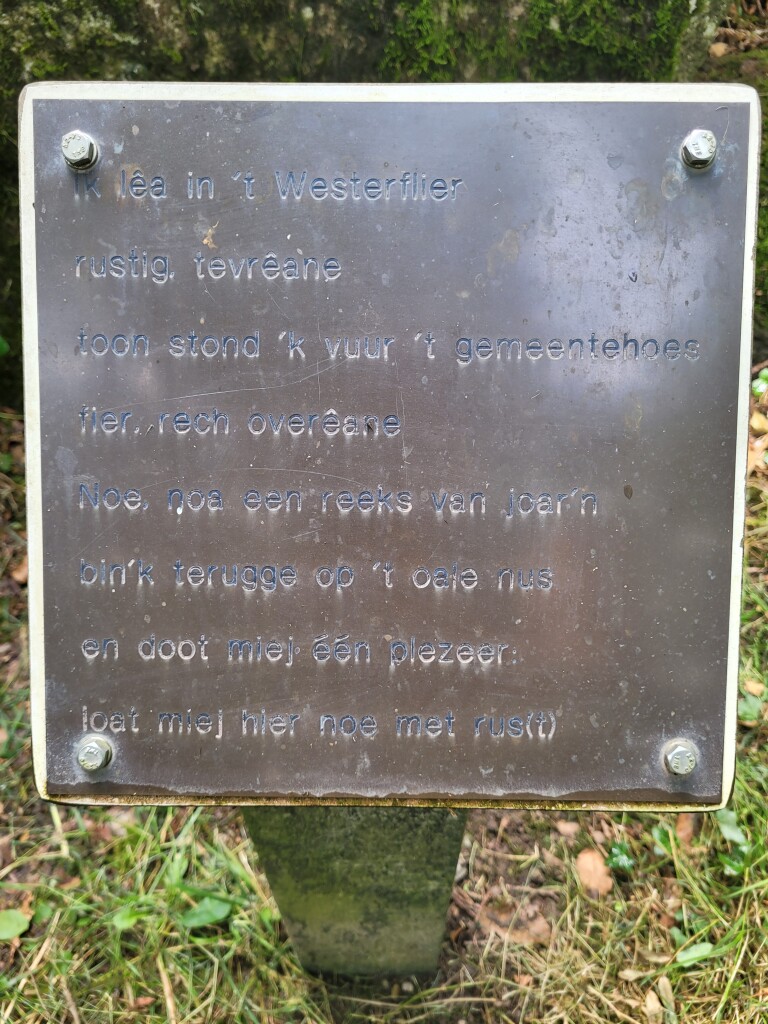 Ik lêa in ´t Westerflier
rustig, tevrêane
toon stond ´k vuur ´t gemeentehoes
fier, rech overêane
Noe, noa een reeks van joar´n
bin´k terugge op ´t oale nus
en doot miej één plezeer:
loat miej hier noe met rus(t)